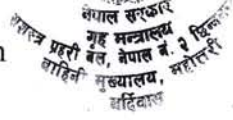 नेपाल सरकार
गृह मन्त्रालय
सशस्त्र प्रहरी बल, नेपाल नं. २ छिन्नमस्ता
बाहिनी मुख्यालय, महोत्तरी
बर्दिबास